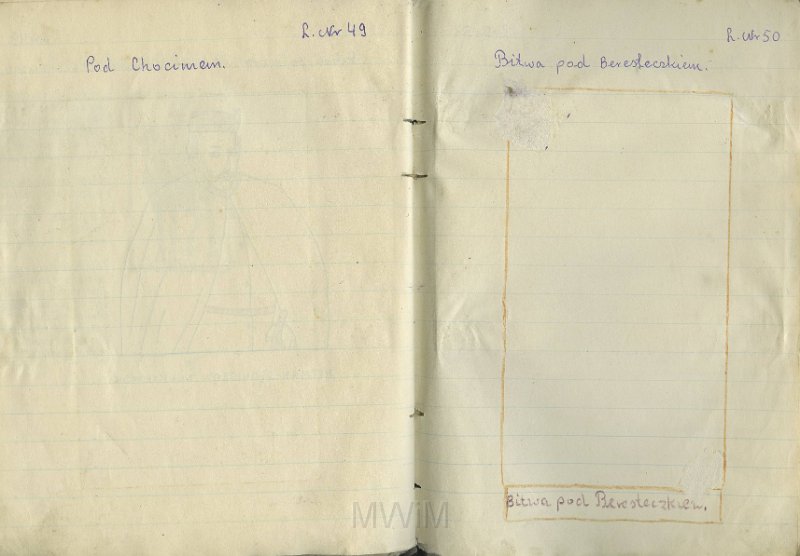 L. Nr 49
Pod Chocimem.
L. Nr 50
Bitwa pod Beresteczkiem.
Bitwa pod Beresteczkiew.
MWiM